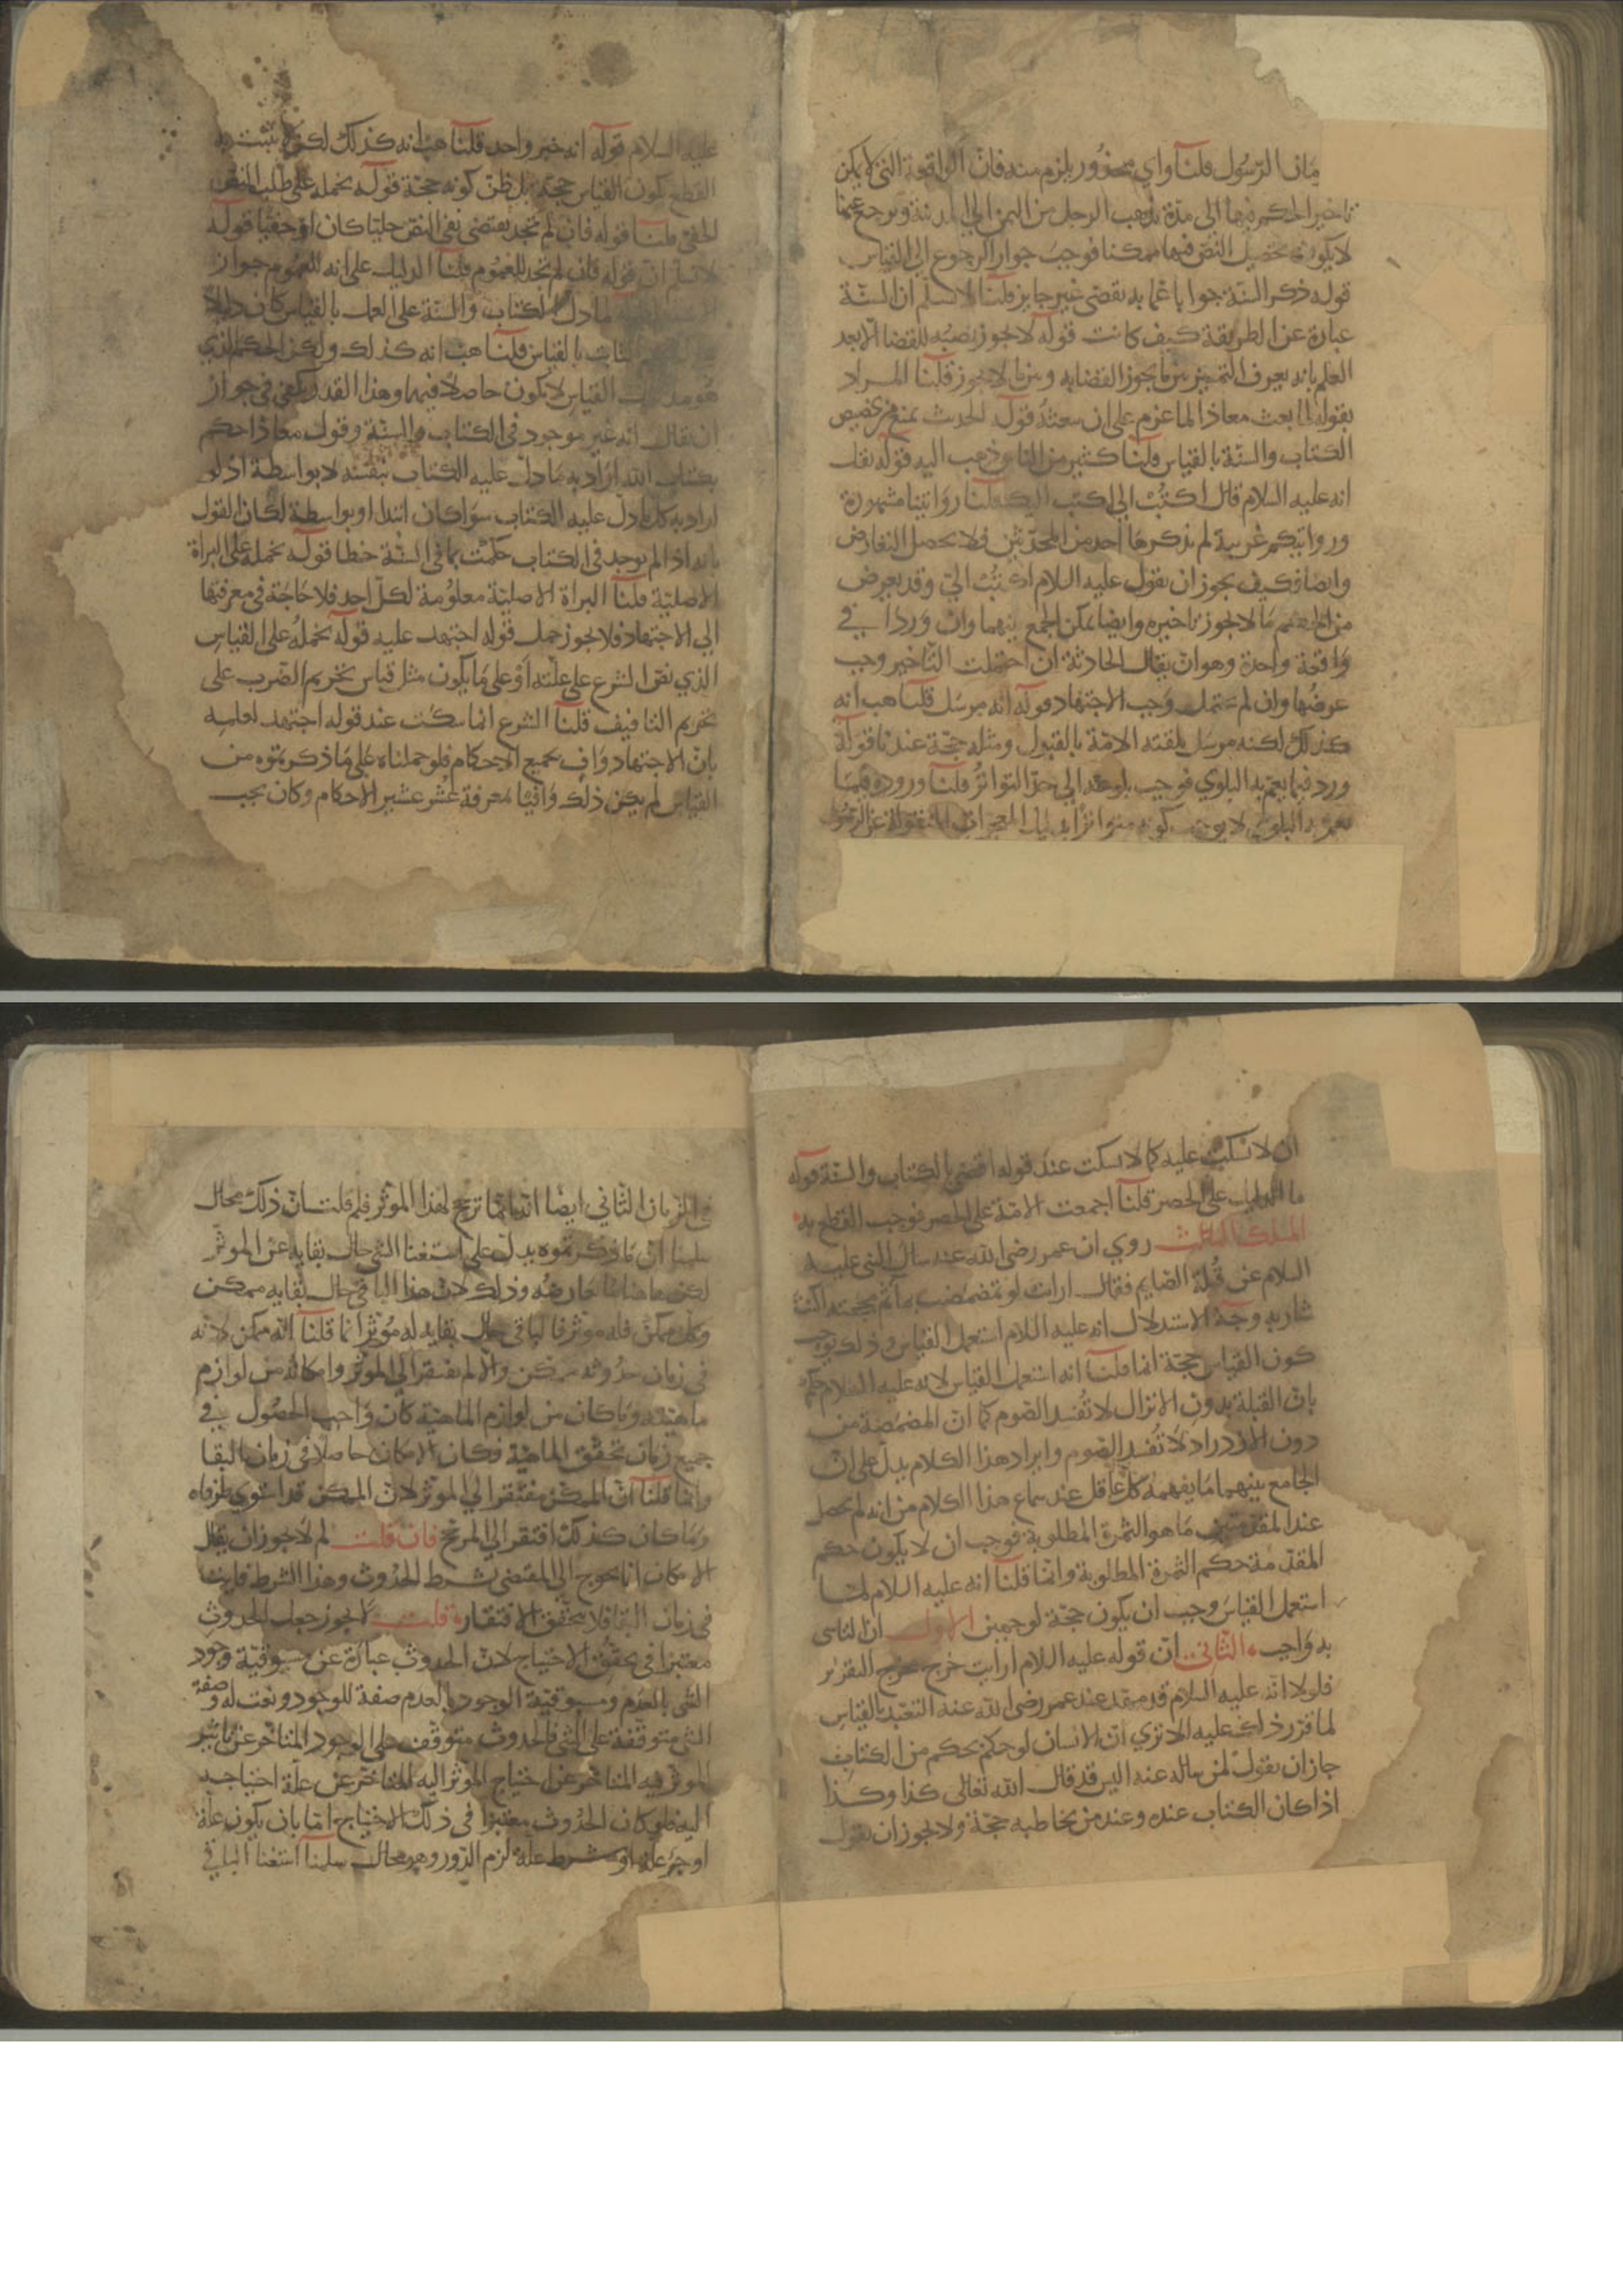 زمان الرسول قلنا واي محذور يلزم منه فان الواقعة التي لا يمكن
تاخير الحكم فيها الى مدة يذهب الرجل من اليمن الى المدينة ويرجع عنها
لا يكون تحصيل النص فيها ممكنا فوجب جواز الرجوع الى القياس
قوله ذكر السنة جوابا عما به يقضى غير جايز قلنا لا نسلم ان السنة
عبارة عن الطريقة كيف كانت قوله لا يجوز نصبه للقضا الا بعد
العلم بانه يعرف التمييز بين ما يجوز القضا به وبين ما لا يجوز قلنا المراد
بقوله لما بعث معاذا لما عزم على ان يبعثه قوله الحديث يمنع من تخصيص
الكتاب والسنة بالقياس قلنا كثير من الناس ذهب اليه قوله نقل
انه عليه السلام قال اكتب الي اكتب اليك قلنا روايتنا مشهورة
وروايتكم غريبة لم يذكرها احد من المحدثين فلا يحصل التعارض
وايضا فكيف يجوز ان يقول عليه السلام اكتب الي وقد يعرض
من الحكم ما لا يجوز تاخيره وايضا يمكن الجمع بينهما وان وردا في
واقعة واحدة وهو ان يقال الحادثة ان احتملت التاخير وجب
عرضها وان لم تحتمل وجب الاجتهاد قوله انه مرسل قلنا هب انه
كذلك لكنه مرسل تلقته الامة بالقبول ومثله حجة عندنا قوله
ورد فيما يعم به البلوي فوجب بلوغه الي حد التواتر قلنا وروده فيما
يعم به البلوي لا يوجب كونه متواترا بدليل المعجزات المنقولة عن الرسول
عليه السلام قوله انه خبر واحد قلنا هب انه كذلك لكن لا يثبت به
القطع بكون القياس حجة بل ظن كونه حجة قوله نحمله على طلب النص
الخفي قلنا قوله فان لم تجد يقتضي نفي النص جليا كان او خفيا قوله
لا نسلم ان قوله فان لم تجد للعموم قلنا الدليل على انه للعموم جواز
الاستثنا لما دل الكتاب والسنة على العمل بالقياس كان دالا
الثابت بالقياس قلنا هب انه كذلك ولكن الحكم الذي
هو مدلول القياس لا يكون حاصلا فيهما وهذا القدر يكفي في جواز
ان يقال انه غير موجود في الكتاب والسنة وقول معاذ احكم
بكتاب الله اراد به ما دل عليه الكتاب بنفسه لا بواسطة اذ لو
اراد به كل ما دل عليه الكتاب سوا كان ابتدا او بواسطة لكان القول
بانه اذا لم يوجد في الكتاب حكمت بما في السنة خطا قوله نحمله على البراة
الاصلية قلنا البراة الاصلية معلومة لكل احد فلا حاجة في معرفتها
الي الاجتهاد فلا يجوز حمل قوله اجتهد عليه قوله نحمله على القياس
الذي نص الشرع على علته او على ما يكون مثل قياس تحريم الضرب على
تحريم التافيف قلنا الشرع انما سكت عند قوله اجتهد لعلمه
بان الاجتهاد واف بجميع الاحكام فلو حملناه على ما ذكرتموه من
القياس لم يكن ذلك وافيا بمعرفة عشر عشير الاحكام وكان يجب
ان لا يسكت عليه كما لا يسكت عند قوله اقضي بالكتاب والسنة قوله
ما الدليل على الحصر قلنا اجمعت الامة على الحصر فوجب القطع به
المسلك الثالث روي ان عمر رضى الله عنه سال النبي عليه
السلام عن قبلة الصايم فقال ارايت لو تمضمضت بماء ثم مججته اكنت
شاربه وجه الاستدلال انه عليه السلام استعمل القياس وذلك يوجب
كون القياس حجة انما قلنا انه استعمل القياس لانه عليه السلام حكم
بان القبلة بدون الانزال لا تفسد الصوم كما ان المضمضة من
دون الازدراد لا تفسد الصوم وايراد هذا الكلام يدل على ان
الجامع بينهما ما يفهمه كل عاقل عند سماع هذا الكلام من انه لم يحصل
عند المقدمتين ما هو الثمرة المطلوبة فوجب ان لا يكون حكم
المقدمة حكم الثمرة المطلوبة وانما قلنا انه عليه السلام لما
استعمل القياس وجب ان يكون حجة لوجهين الاول ان التاسي
به واجب الثاني ان قوله عليه السلام ارايت خرج مخرج التقرير
فلولا انه عليه السلام قد مهد عند عمر رضى الله عنه التعبد بالقياس
لما قرر ذلك عليه الا ترى ان الانسان لو حكم بحكم من الكتاب
جاز ان يقول لمن ساله عنه اليس قد قال الله تعالى كذا وكذا
اذا كان الكتاب عنده وعند من يخاطبه حجة ولا يجوز ان يقول
في الزمان الثاني ايضا انه انما ترجح لهذا الموثر فلم قلت بان ذلك محال
سلمنا ان ما ذكرتموه يدل على استغنا الشي حال بقايه عن الموثر
لكن هاهنا ما يعارضه وذلك لان هذا الباقي حال بقايه ممكن
وكل ممكن فله موثر فالباقي حال بقايه له موثر انما قلنا انه ممكن لانه
في زمان حدوثه ممكن والا لم يفتقر الي الموثر وامكانه من لوازم
ماهيته وما كان من لوازم الماهية كان واجب الحصول في
جميع زمان تحقق الماهية فكان الامكان حاصلا في زمان البقا
وانما قلنا ان الممكن مفتقر الي الموثر لان الممكن قد استوي طرفاه
وما كان كذلك افتقر الي المرجح فان قلت لم لا يجوز ان يقال
الامكان انما يحوج الى المقتضي بشرط الحدوث وهذا الشرط فايت
في زمان البقا فلا يتحقق الافتقار قلت لا يجوز جعل الحدوث
معتبرا في تحقق الاحتياج لان الحدوث عبارة عن مسبوقية وجود
الشي بالعدم ومسبوقية الوجود بالعدم صفة للوجود ونعت له وصفة
الشي متوقفة على الشي فالحدوث متوقف على الوجود المتاخر عن تاثير
الموثر فيه المتاخر عن احتياج الموثر اليه المتاخر عن علة احتياجه
اليه فلو كان الحدوث معتبرا في ذلك الاحتياج اما بان يكون علة
او جزء علة او شرط علة لزم الدور وهو محال سلمنا استغنا الباقي